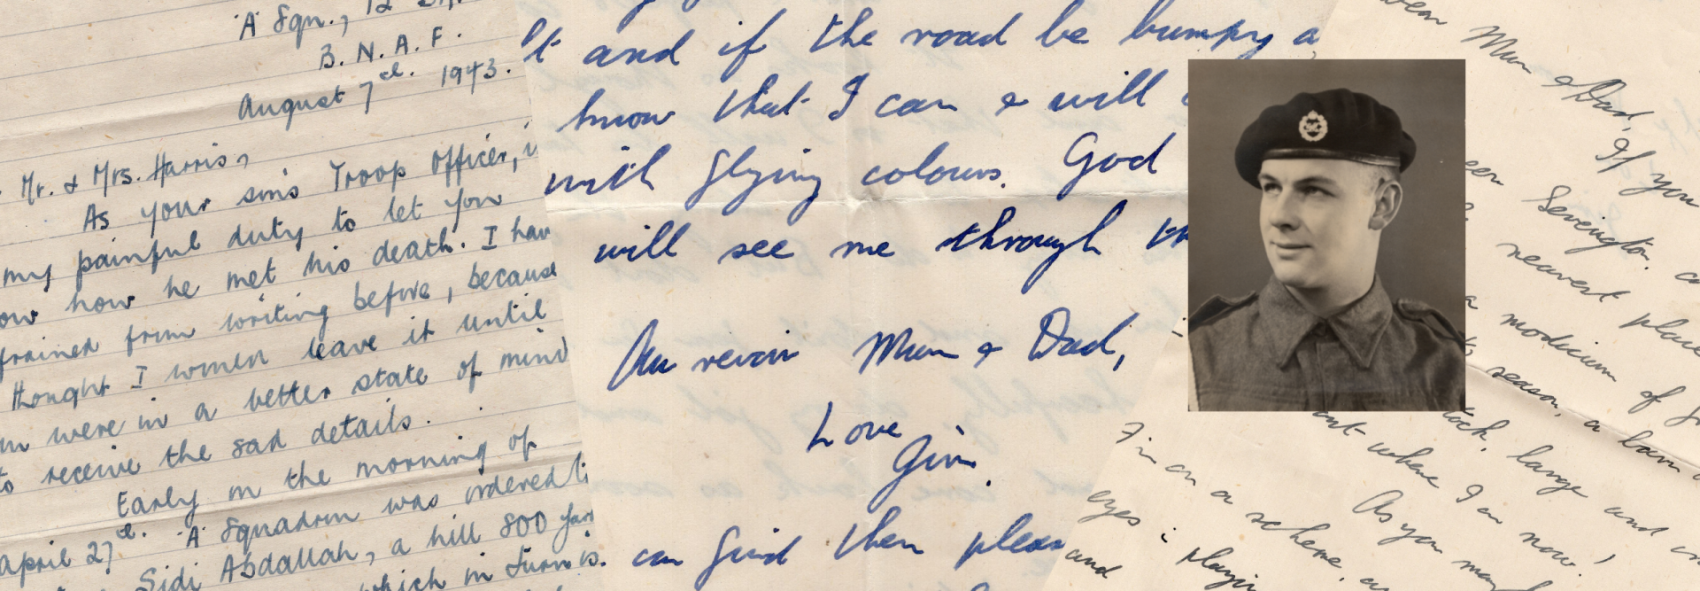 'A' Sqn., 12
B. N. A. F.
August 7th. 1943.
Mr. & Mrs. Harris,
As your son's Troop Officer, i
my painful duty to let you
how he met his death. I hav
from writing before, because
thought I would leave it until
were in a better state of mind
to receive the sad details.
Early on the morning of
April 27th. 'A' Squadron was ordered
Sidi Abdallah, a hill 800 yar
which in
it and if the road be bumpy a
know that I can & will
with flying colours. God
will see me through th
Au revoir Mum & Dad,
Love
Jim
can find them pleas
Mum & Dad,
If you
Sevington.
nearest place
a modicum of
season, a lawn
stock, large and
but where I am now!
I'm on a scheme, As you may
eyes
and playin